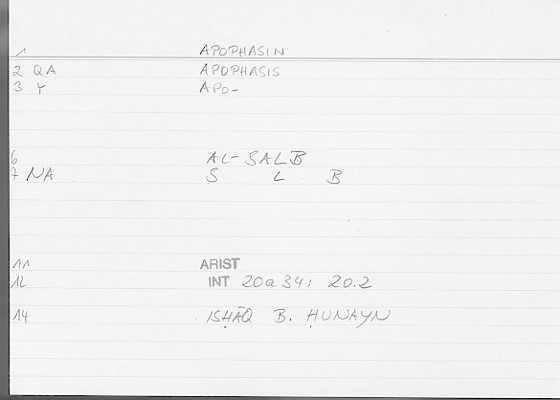 1 APOPHASIN
2 QA APOPHASIS
3 Y APO-
6 AL-SALB
7 NA S L B
11 ARIST
12 INT 20a34; 20.2
14 ISḤĀQ B. ḤUNAYN